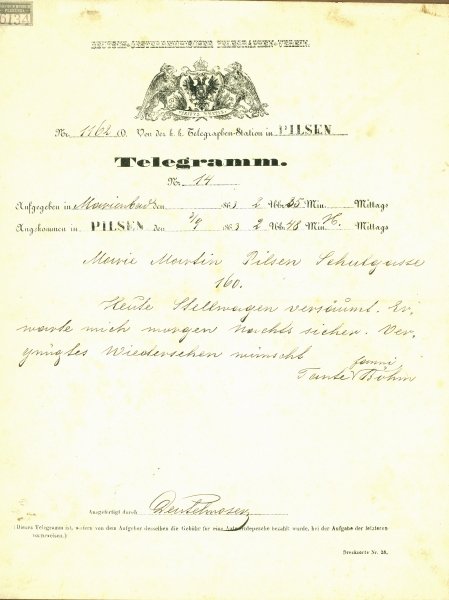 6134
DEUTSCH-OESTERREICHISCHER TELEGRAPHEN-VEREIN.
Nr. 1162 Von der k. k. Telegraphen-Station in PILSEN
Telegramm.
Nr. 14
Aufgegeben in Marienbad den 186 3 2 Uhr 35 Min. Mittags
Angekommen in PILSEN den 2/9 186 3 2 Uhr 48 Min. N. Mittags
Marie Martin Pilsen Schulgasse
160.
Heute Stellwagen versäumt. Er
warte mich morgen Nachts sicher. Ver
gnügtes Wiedersehen wünscht
fanni
Tante Böhm
Ausgefertigt durch
(Dieses Telegramm ist, sofern von dem Aufgeber desselben die Gebühr für eine Antwortdepesche bezahlt wurde, bei der Aufgabe der letzteren
vorzuweisen.)
Drucksorte Nr. 28.